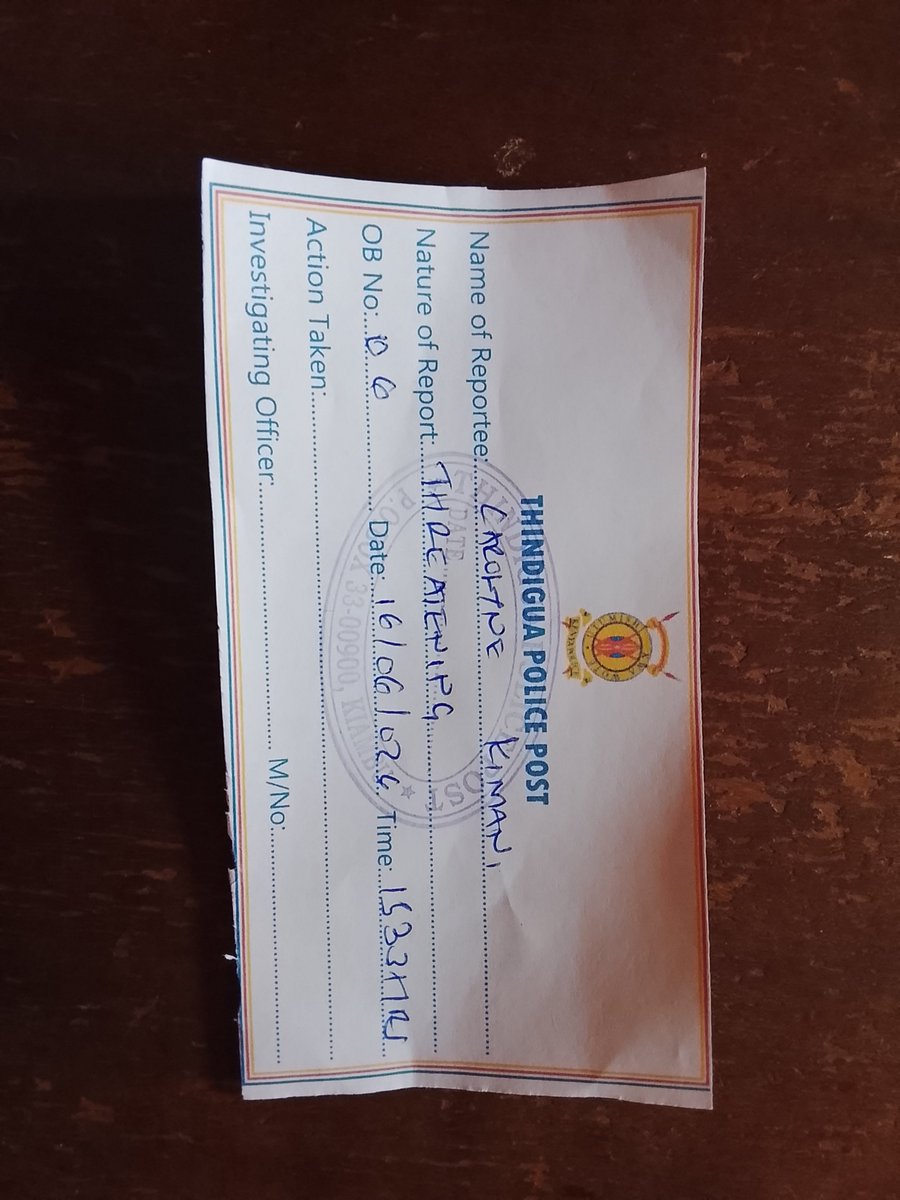 UTUMISHI KWA WOTE
THINDIGUA POLICE POST
Name of Reportee: CAROLYNE KIMANI
Nature of Report: THREATENING
OB No: 06 Date: 16/06/024 Time: 1533HRS
Action Taken:
Investigating Officer: M/No:
THINDIGUA POLICE POST
DATE
P.O. BOX 33-00900, KIAMBU